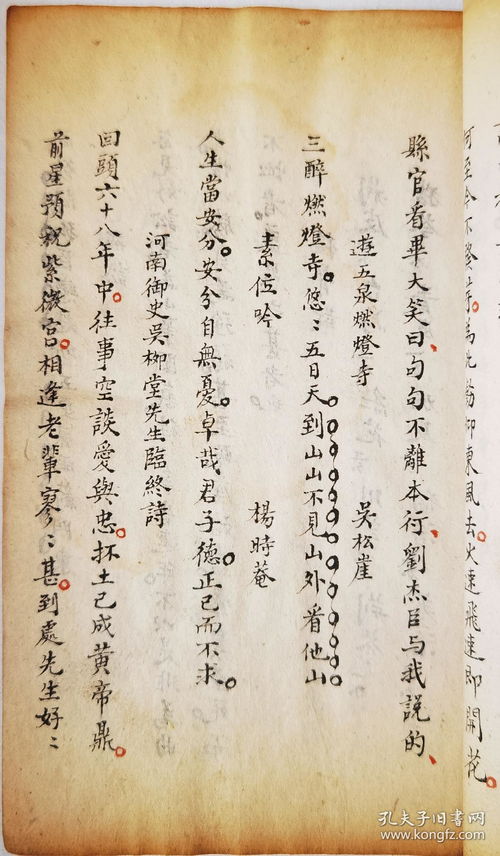 東風去火速飛速即開花。
縣官看畢大笑曰、句句不離本行、劉杰臣与我説的、
遊五泉燃燈寺 吳松崖
三醉燃燈寺。悠〻五日天。到山山不見山外看他山。
素位吟 楊時菴
人生當安分。安分自無憂。卓哉君子德。正己而不求。
河南御史吳栁堂先生臨終詩
回頭六十八年中。往事空談愛與忠。抔土已成黄帝鼎。
前星預祝紫微宫。相逢老輩寥〻甚。到處先生好〻
孔夫子旧书网
www.kongfz.com